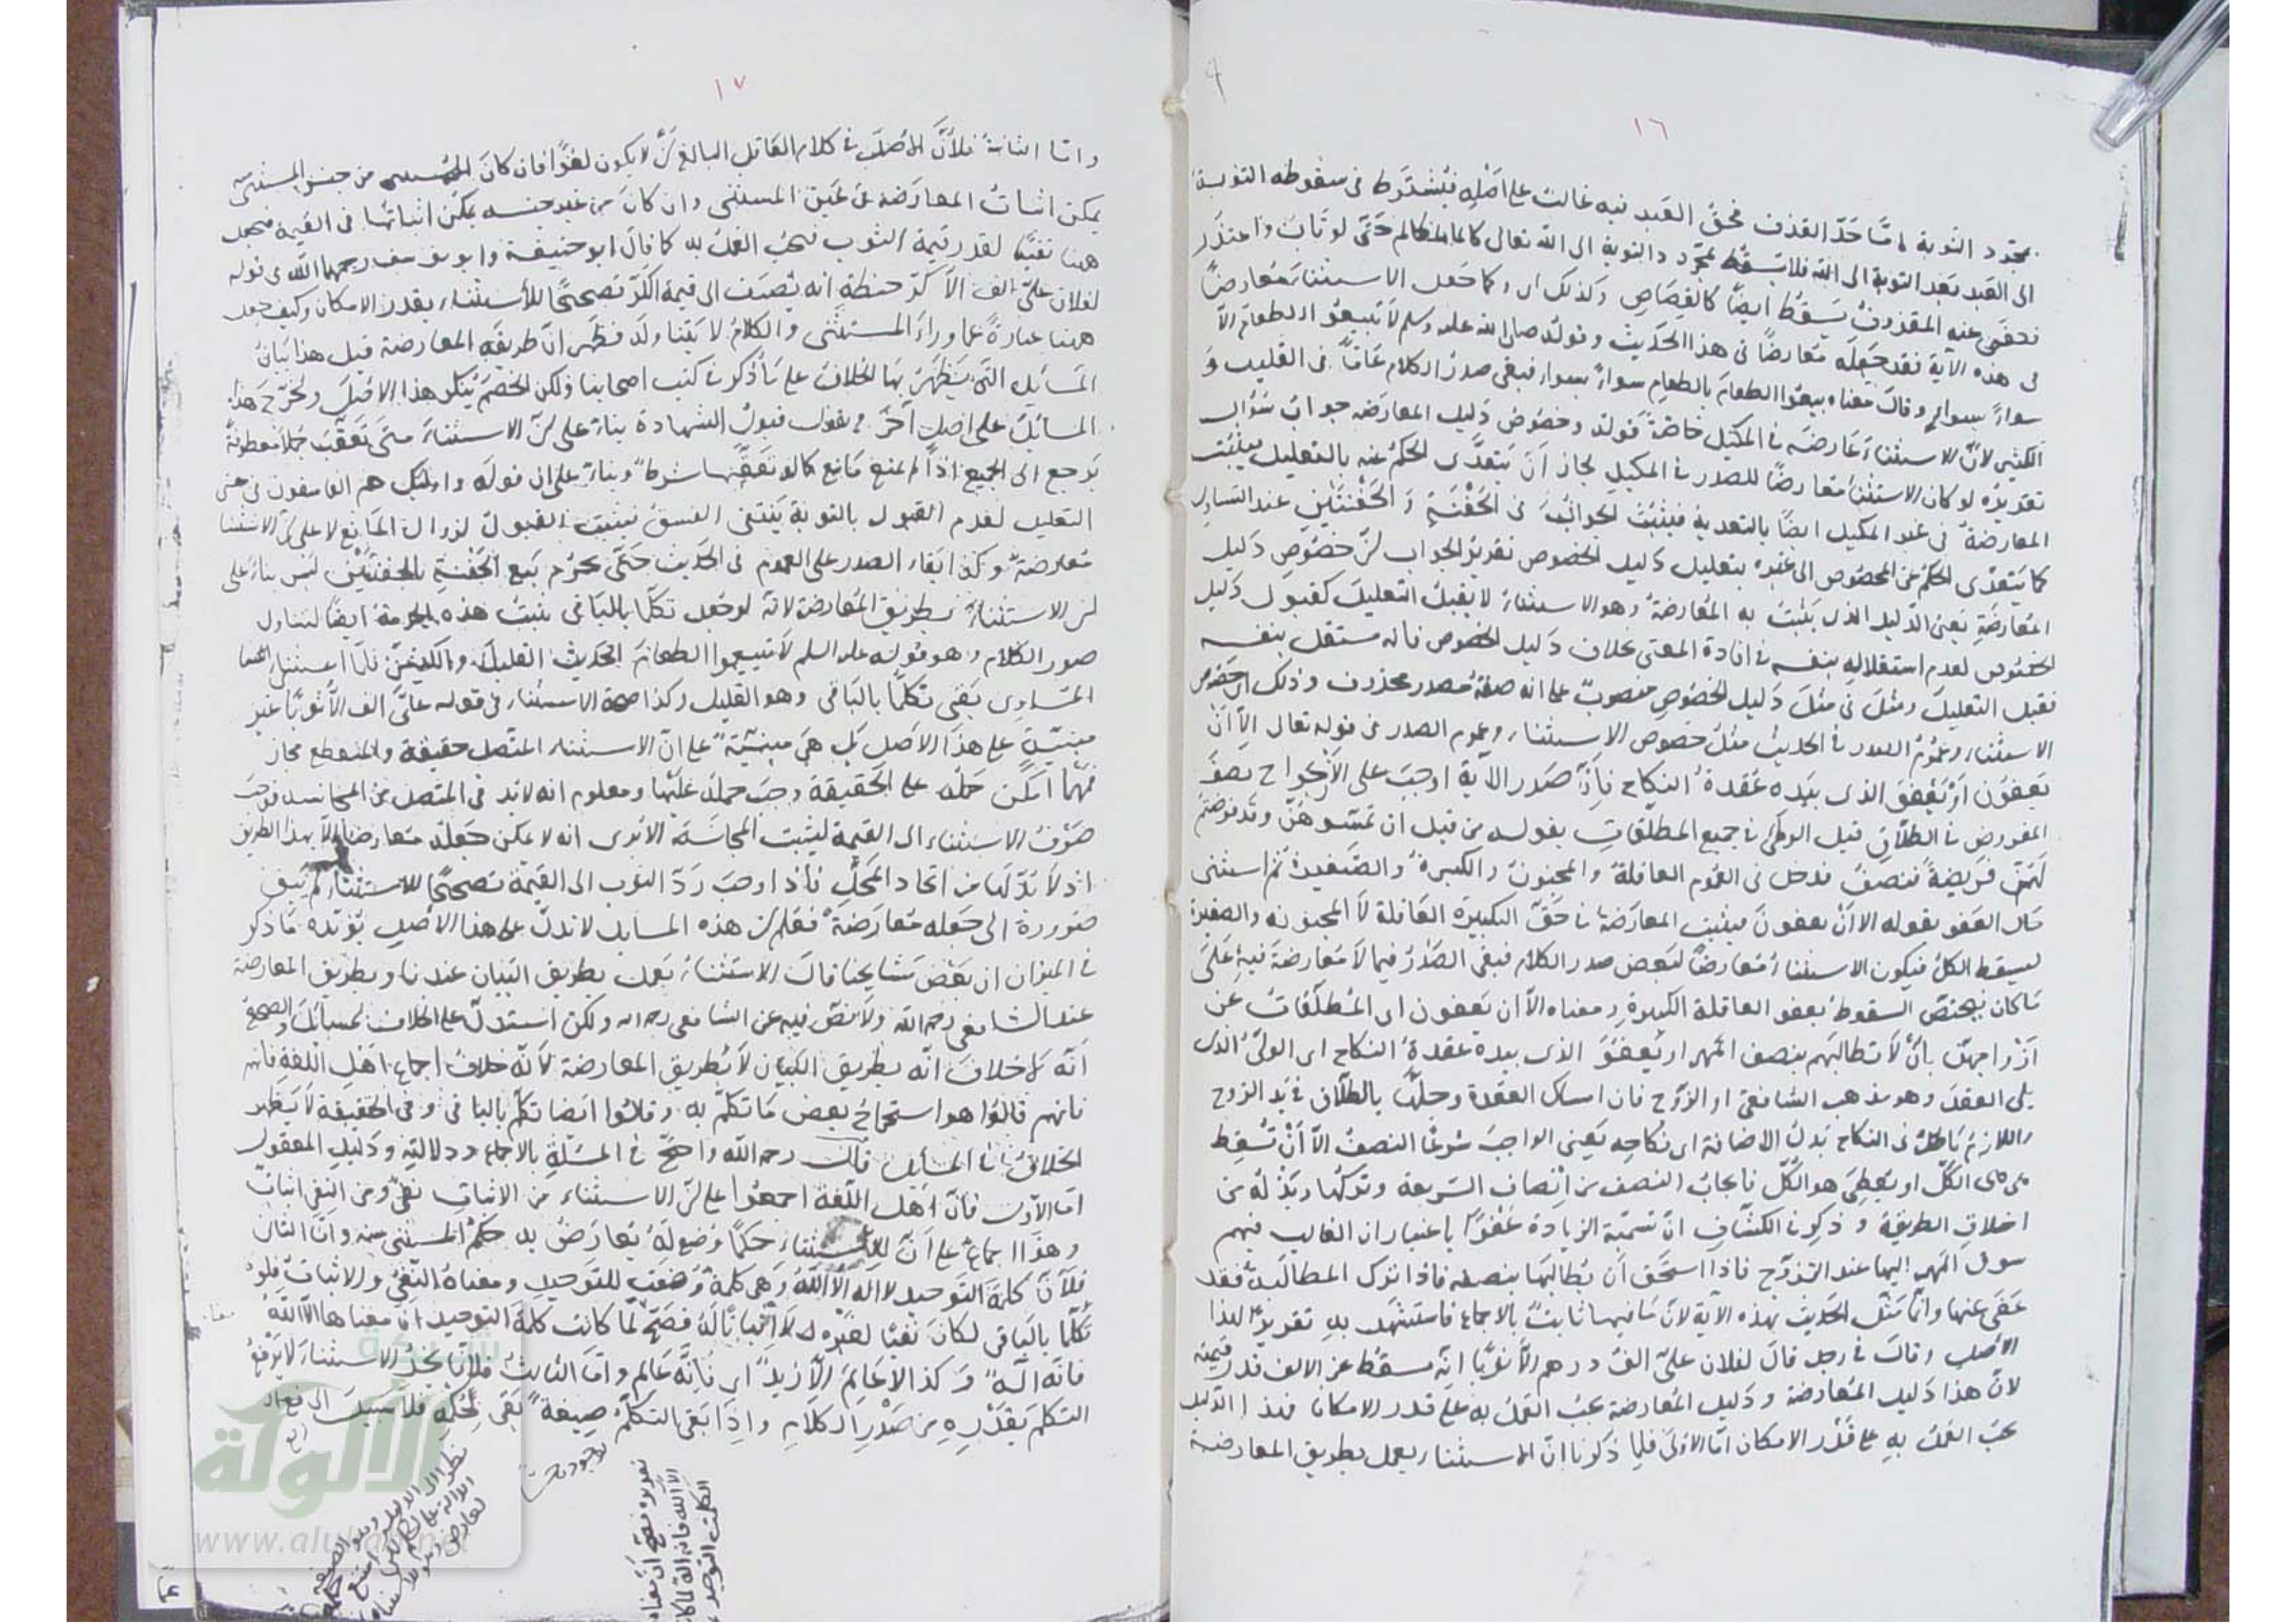 ١٦
بمجرد التوبة فاما حد القذف فحق العبد فيه غالب على اصله فيشترط فى سقوطه التوبة
الى العبد بعد التوبة الى الله فلا يسقط بمجرد التوبة الى الله تعالى كالمظالم حتى لو تاب واعتذر
فعفى عنه المقذوف يسقط ايضا كالقصاص وكذلك اى وكما جعل الاستثناء معارضا
فى هذه الآية فقد جعله معارضا فى هذا الحديث وقوله صلى الله عليه وسلم لا تبيعوا الطعام الا
سواء بسواء وقال معناه بيعوا الطعام بالطعام سواء بسواء فبقى صدر الكلام عاما فى القليل و
الكثير لان الاستثناء عارضه فى المكيل خاصة قوله وخصوص دليل المعارضه جواب سؤال
تقديره لو كان الاستثناء معارضا للصدر فى المكيل لجاز ان يتعدى الحكم عنه بالتعليل فيثبت
المعارضة فى غير المكيل ايضا بالتعدية فيثبت الجواز فى الحفنة و الحفنتين عند التساوى
كما يتعدى الحكم عن المخصوص الى غيره بتعليل دليل الخصوص تقرير الجواب لان خصوص دليل
المعارضة يعنى الدليل الذى يثبت به المعارضة وهو الاستثناء لا يقبل التعليل كقبول دليل
الخصوص لعدم استقلاله بنفسه فى افادة المعنى بخلاف دليل الخصوص فانه مستقل بنفسه
فقبل التعليل ومثل فى مثل دليل الخصوص منصوب على انه صفة مصدر محذوف وذلك اى خصوص
الاستثناء وعموم الصدر فى الحديث مثل خصوص الاستثناء وعموم الصدر فى قوله تعالى الا ان
يعفون او يعفو الذى بيده عقدة النكاح فان صدر الآية اوجب على الازواج نصف
المفروض فى الطلاق قبل الوطئ فى جميع المطلقات بقوله من قبل ان تمسوهن وقد فرضتم
لهن فريضة فنصف فدخل فى العموم العاقلة والمجنونة والكبيرة والصغيرة ثم استثنى
حال العفو بقوله الا ان يعفون فيثبت المعارضة فى حق الكبيرة العاقلة لا المجنونه والصغيرة
ليسقط الكل فيكون الاستثناء معارضا لبعض صدر الكلام فبقى الصدر فيما لا معارضة فيه على
ما كان فيختص السقوط بعفو العاقلة الكبيرة ومعناه الا ان يعفون اى المطلقات عن
ازواجهن بان لا تطالبهم بنصف المهر او يعفو الذى بيده عقدة النكاح اى الولى الذى
يلى العقد وهو مذهب الشافعى او الزوج فان امساك العقدة وحلها بالطلاق فى يد الزوج
واللازم باطل فى النكاح بدل الاضافة اى نكاحه يعنى الواجب شرعا النصف الا ان تسقط
هى الكل او يعطى هو الكل فايجاب النصف من انصاف الشريعة وتركها وبذله من
اخلاق الطريقة وذكر فى الكشاف ان تسمية الزيادة عفوا باعتبار ان الغالب فيهم
سوق المهر اليها عند التزوج فاذا استحق ان يطالبها بنصفه فاذا ترك المطالبة فقد
عفى عنها وانما مثل الحديث بهذه الآية لان ما فيها ثابت بالاجماع فاستشهد به تقريرا لهذا
الاصل وقال فى رجل قال لفلان على الف درهم الا ثوبا انه يسقط عن الالف قدر قيمته
لان هذا دليل المعارضة ودليل المعارضة يجب العمل به على قدر الامكان فهذا الدليل
يجب العمل به على قدر الامكان اما الاولى فلما ذكرنا ان الاستثناء يعمل بطريق المعارضة
١٧
واما الثانية فلان الاصل فى كلام العاقل البالغ ان لا يكون لغوا فان كان المستثنى من جنس المستثنى منه
يمكن اثبات المعارضه فى عين المستثنى وان كان من غير جنسه يمكن اثباتها فى القيمة فيجعل
ههنا نفيا لقدر قيمة الثوب فيجب العمل به كما قال ابو حنيفة وابو يوسف رحمهما الله فى قوله
لفلان على الف الا كر حنطة انه يصرف الى قيمة الكر تصحيحا للاستثناء بقدر الامكان وكيف جعل
ههنا عبارة عما وراء المستثنى والكلام لا يتناوله فظهر ان طريقه المعارضة قيل هذا بيان
المسائل التى يظهر بها الخلاف على ما ذكر فى كتب اصحابنا ولكن الخصم ينكر هذا الاصل ويخرج هذه
المسائل على اصل آخر فيقول قبول الشهادة بناء على ان الاستثناء متى تعقب جملا معطوفة
يرجع الى الجميع اذا لم يمنع مانع كما لو تعقبها شرط وبناء على ان قوله واولئك هم الفاسقون فى معنى
التعليل لعدم القبول بالتوبة ينتفى الفسق فيثبت القبول لزوال المانع لا على ان الاستثناء
معارضة وكذا ابقاء الصدر على العموم فى الحديث حتى يحرم بيع الحفنة بالحفنتين ليس بناء على
ان الاستثناء بطريق المعارضة لانه لو جعل تكلما بالباقى يثبت هذه الحرمة ايضا لتناول
صدر الكلام وهو قوله عليه السلم لا تبيعوا الطعام الحديث القليل والكثير فلما استثنى الحال
المتساوى بقى تكلما بالباقى وهو القليل وكذا صحة الاستثناء فى قوله على الف الا ثوبا غير
مبنية على هذا الاصل بل هى مبنية على ان الاستثناء المتصل حقيقة والمنقطع مجاز
فمهما امكن حمله على الحقيقة وجب حمله عليها ومعلوم انه لابد فى المتصل من المجانسه فوجب
صرف الاستثناء الى القيمة ليثبت المجانسة الا ترى انه لا يمكن جعله معارضا الا بهذا الطريق
اذ لا بد لها من اتحاد المحل فاذا وجب رد الثوب الى القيمة تصحيحا للاستثناء لم يبق
ضرورة الى جعله معارضة فعلم ان هذه المسائل لا تدل على هذا الاصل يؤيده ما ذكر
فى الميزان ان بعض مشايخنا قال الاستثناء يعمل بطريق البيان عندنا وبطريق المعارضة
عند الشافعى رحمه الله ولا نص فيه عن الشافعى رحمه الله ولكن استدل على الخلاف بمسائل والصحيح
انه لا خلاف انه بطريق البيان لا بطريق المعارضة لانه خلاف اجماع اهل اللغة فانهم
فانهم قالوا هو استخراج بعض ما تكلم به وقالوا ايضا تكلم بالباقى وفى الحقيقة لا يظهر
الخلاف فى المسائل قال رحمه الله واحتج فى المسئلة بالاجماع ودلالته ودليل المعقول
اما الاول فان اهل اللغة اجمعوا على ان الاستثناء من الاثبات نفى ومن النفى اثبات
وهذا اجماع على ان للاستثناء حكما وضع له يعارض به حكم المستثنى منه واما الثانى
فلان كلمة التوحيد لا اله الا الله وهى كلمة وضعت للتوحيد ومعناه النفى والاثبات فلو
تكلما بالباقى لكان نفيا لغيره لا اثباتا له فصح لما كانت كلمة التوحيد ان معناها الا الله
فانه اله وكذا لا عالم الا زيد اى فانه عالم واما الثالث فلانا نجد الاستثناء لا يرفع
التكلم بقدره من صدر الكلام واذا بقى التكلم صيغة بقى بحكمه فلا سبيل الى رفع
الألوكة